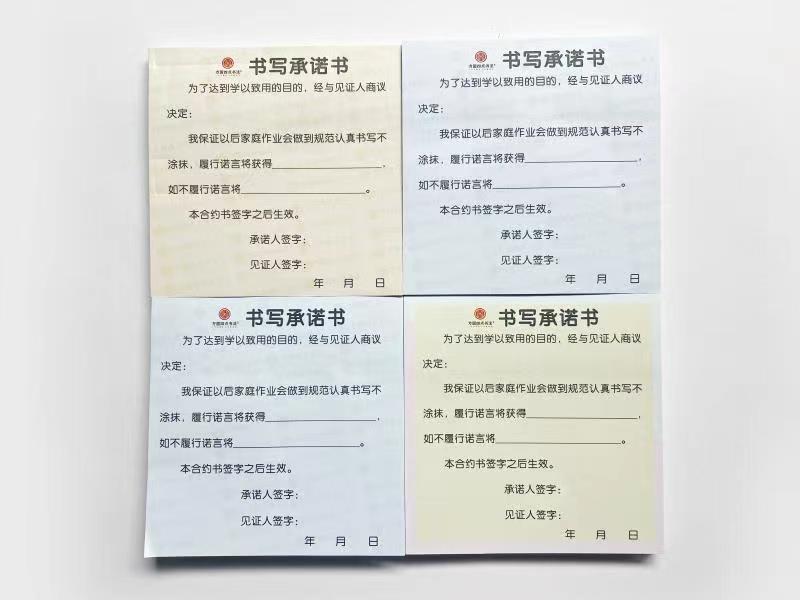 书写承诺书
为了达到学以致用的目的，经与见证人商议
决定：
我保证以后家庭作业会做到规范认真书写不
涂抹，履行诺言将获得____________________，
如不履行诺言将______________________。
本合约书签字之后生效。
承诺人签字：
见证人签字：
年 月 日
书写承诺书
为了达到学以致用的目的，经与见证人商议
决定：
我保证以后家庭作业会做到规范认真书写不
涂抹，履行诺言将获得____________________，
如不履行诺言将______________________。
本合约书签字之后生效。
承诺人签字：
见证人签字：
年 月 日
书写承诺书
为了达到学以致用的目的，经与见证人商议
决定：
我保证以后家庭作业会做到规范认真书写不
涂抹，履行诺言将获得____________________，
如不履行诺言将______________________。
本合约书签字之后生效。
承诺人签字：
见证人签字：
年 月 日
书写承诺书
为了达到学以致用的目的，经与见证人商议
决定：
我保证以后家庭作业会做到规范认真书写不
涂抹，履行诺言将获得____________________，
如不履行诺言将______________________。
本合约书签字之后生效。
承诺人签字：
见证人签字：
年 月 日